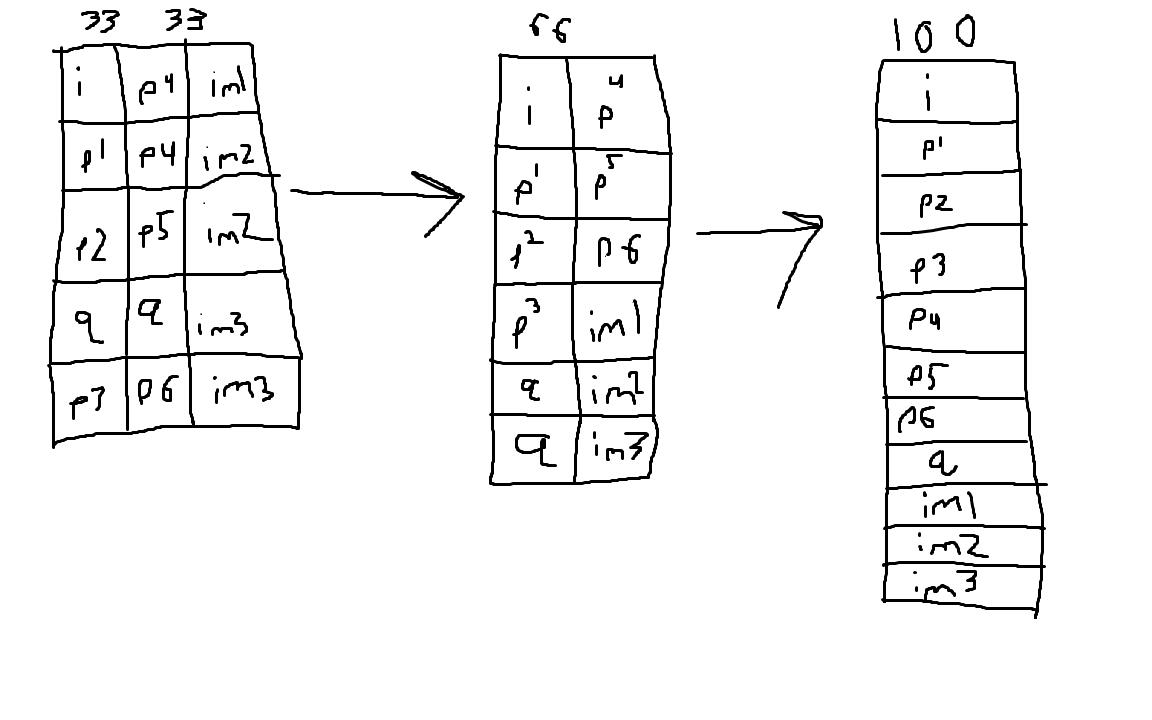 33 33
i p4 im1
p1 p4 im2
p2 p5 im2
q q im3
p3 p6 im3
66
i p4
p1 p5
p2 p6
p3 im1
q im2
q im3
100
i
p1
p2
p3
p4
p5
p6
q
im1
im2
im3